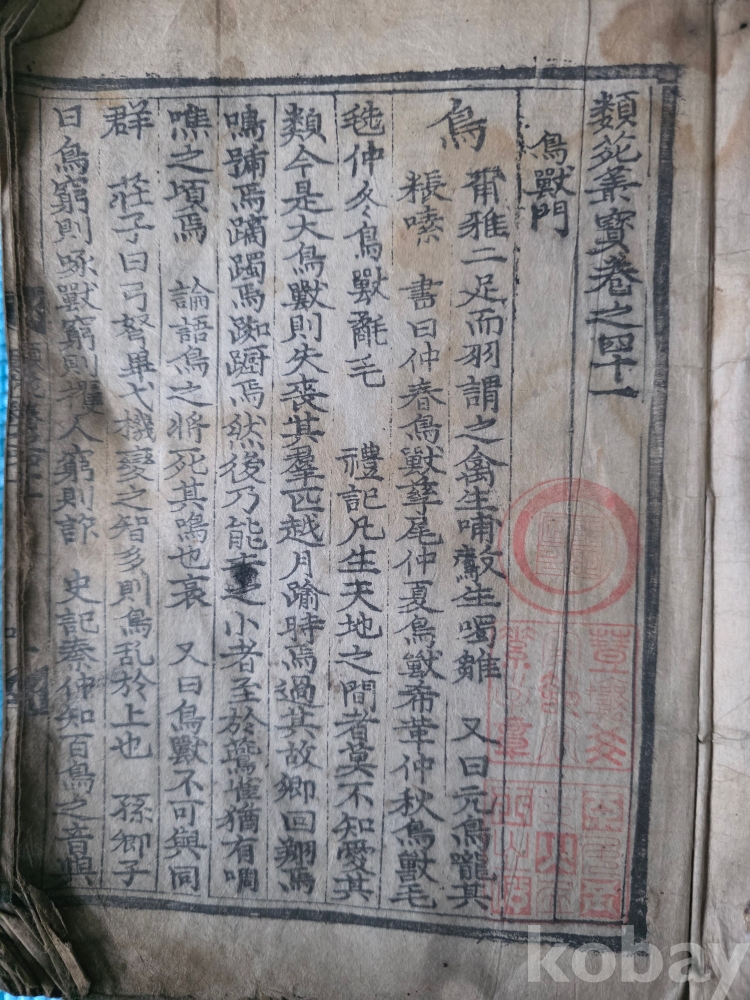 類苑叢寶卷之四十一
鳥獸門
鳥
爾雅二足而羽謂之禽生哺鷇生噣雛 又曰元鳥嚨其
粻嗉 書曰仲春鳥獸孳尾仲夏鳥獸希革仲秋鳥獸毛
毨仲冬鳥獸氄毛 禮記凡生天地之間者莫不知愛其
類今是大鳥獸則失喪其羣匹越月踰時焉過其故鄉回翔焉
鳴號焉蹢躅焉踟躕焉然後乃能去之小者至於鷰雀猶有啁
噍之頃焉 論語鳥之將死其鳴也哀 又曰鳥獸不可與同
群 莊子曰弓弩畢弋機變之智多則鳥乱於上也 孫卿子
曰鳥窮則啄獸窮則攫人窮則詐 史記秦仲知百鳥之音與
kobay